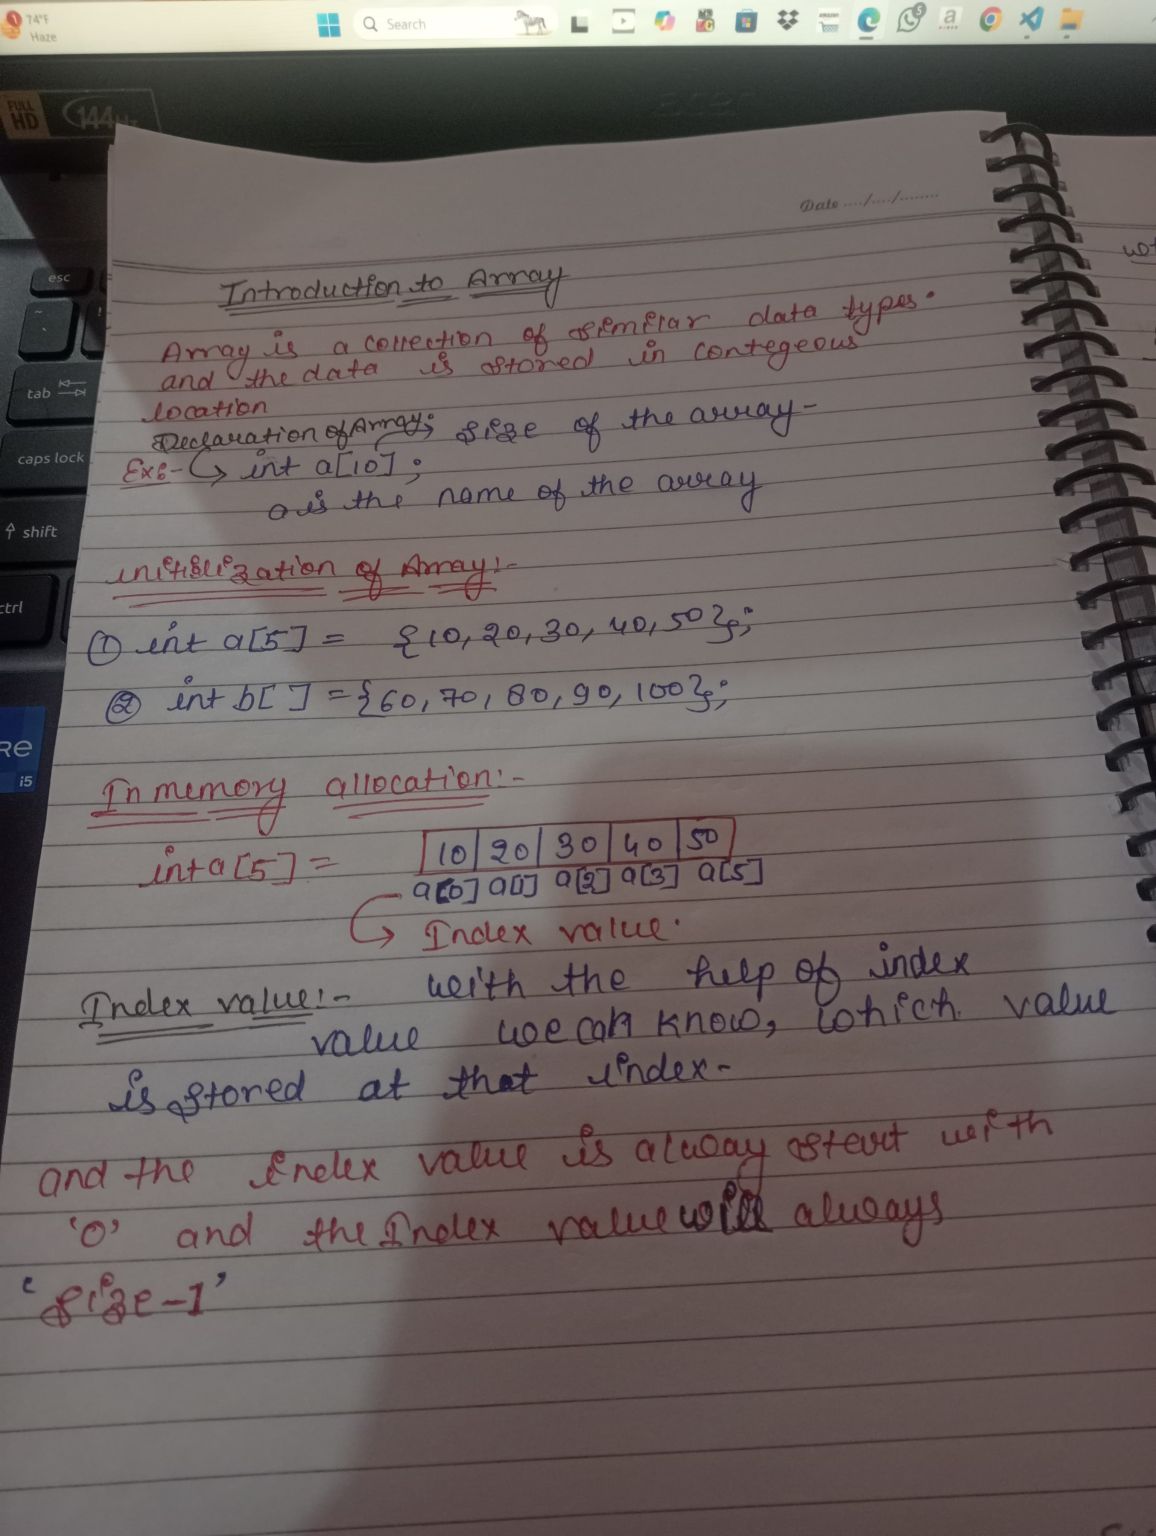 74°F
Haze
Search
FULL HD
144Hz
esc
tab
caps lock
shift
ctrl
i5
Date ..../..../........
Introduction to Array
Array is a collection of similar data types.
and the data is stored in contegeous
location
Declaration of Array; size of the array-
Ex:- int a[10];
a is the name of the array
initialization of Array:-
① int a[5] = {10, 20, 30, 40, 50};
② int b[ ] = {60, 70, 80, 90, 100};
In memory allocation:-
int a[5] = 10 20 30 40 50
a[0] a[1] a[2] a[3] a[5]
Index value.
Index value:- with the help of index
value we can know, which value
is stored at that index-
and the index value is alway start with
'0' and the Index value will always
'size-1'